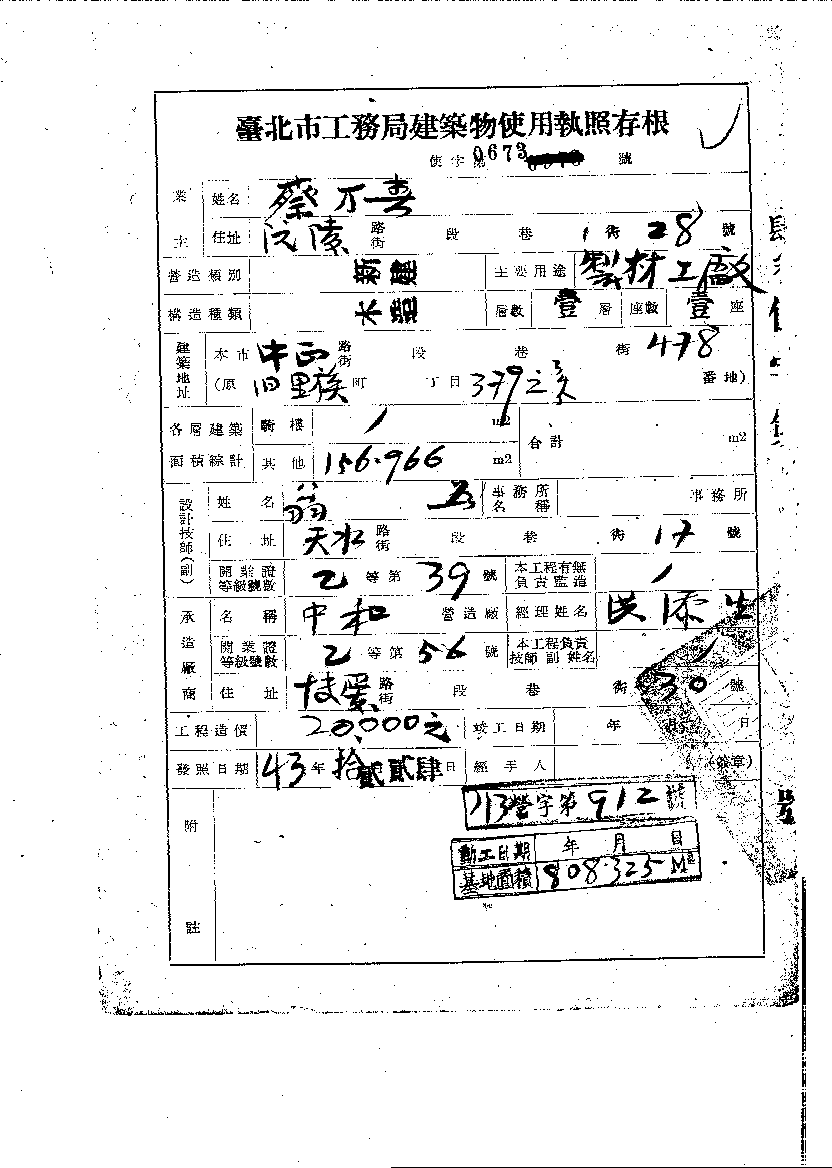 臺北市工務局建築物使用執照存根
使字第0673號
業主 姓名 蔡万春
住址 沅陵 路街 段 巷 1 街 28 號
營造類別 新建 主要用途 製材工廠
構造種類 木造 層數 壹 層 座數 壹 座
建築地址 本市 中正 路街 段 巷 街 478
(原 旧里族 町 丁目 379之 番地)
各層建築面積綜計 騎樓 / m2 合計 m2
其他 156.966 m2
設計技師(副) 姓名 翁 五 事務所名稱 事務所
住址 天水 路街 段 巷 街 17 號
開業證等級號數 乙 等第 39 號 本工程有無負責監造 /
承造廠商 名稱 中和 營造廠 經理姓名 洪添生
開業證等級號數 乙 等第 56 號 本工程負責技師副姓名 /
住址 路街 段 巷 街 30 號
工程造價 20,000元 竣工日期 年 月 日
發照日期 43年拾貳貳肆日 經手人 (簽章)
附註
營字第 912 號
動工日期 年 月 日
基地面積 808.325 M²